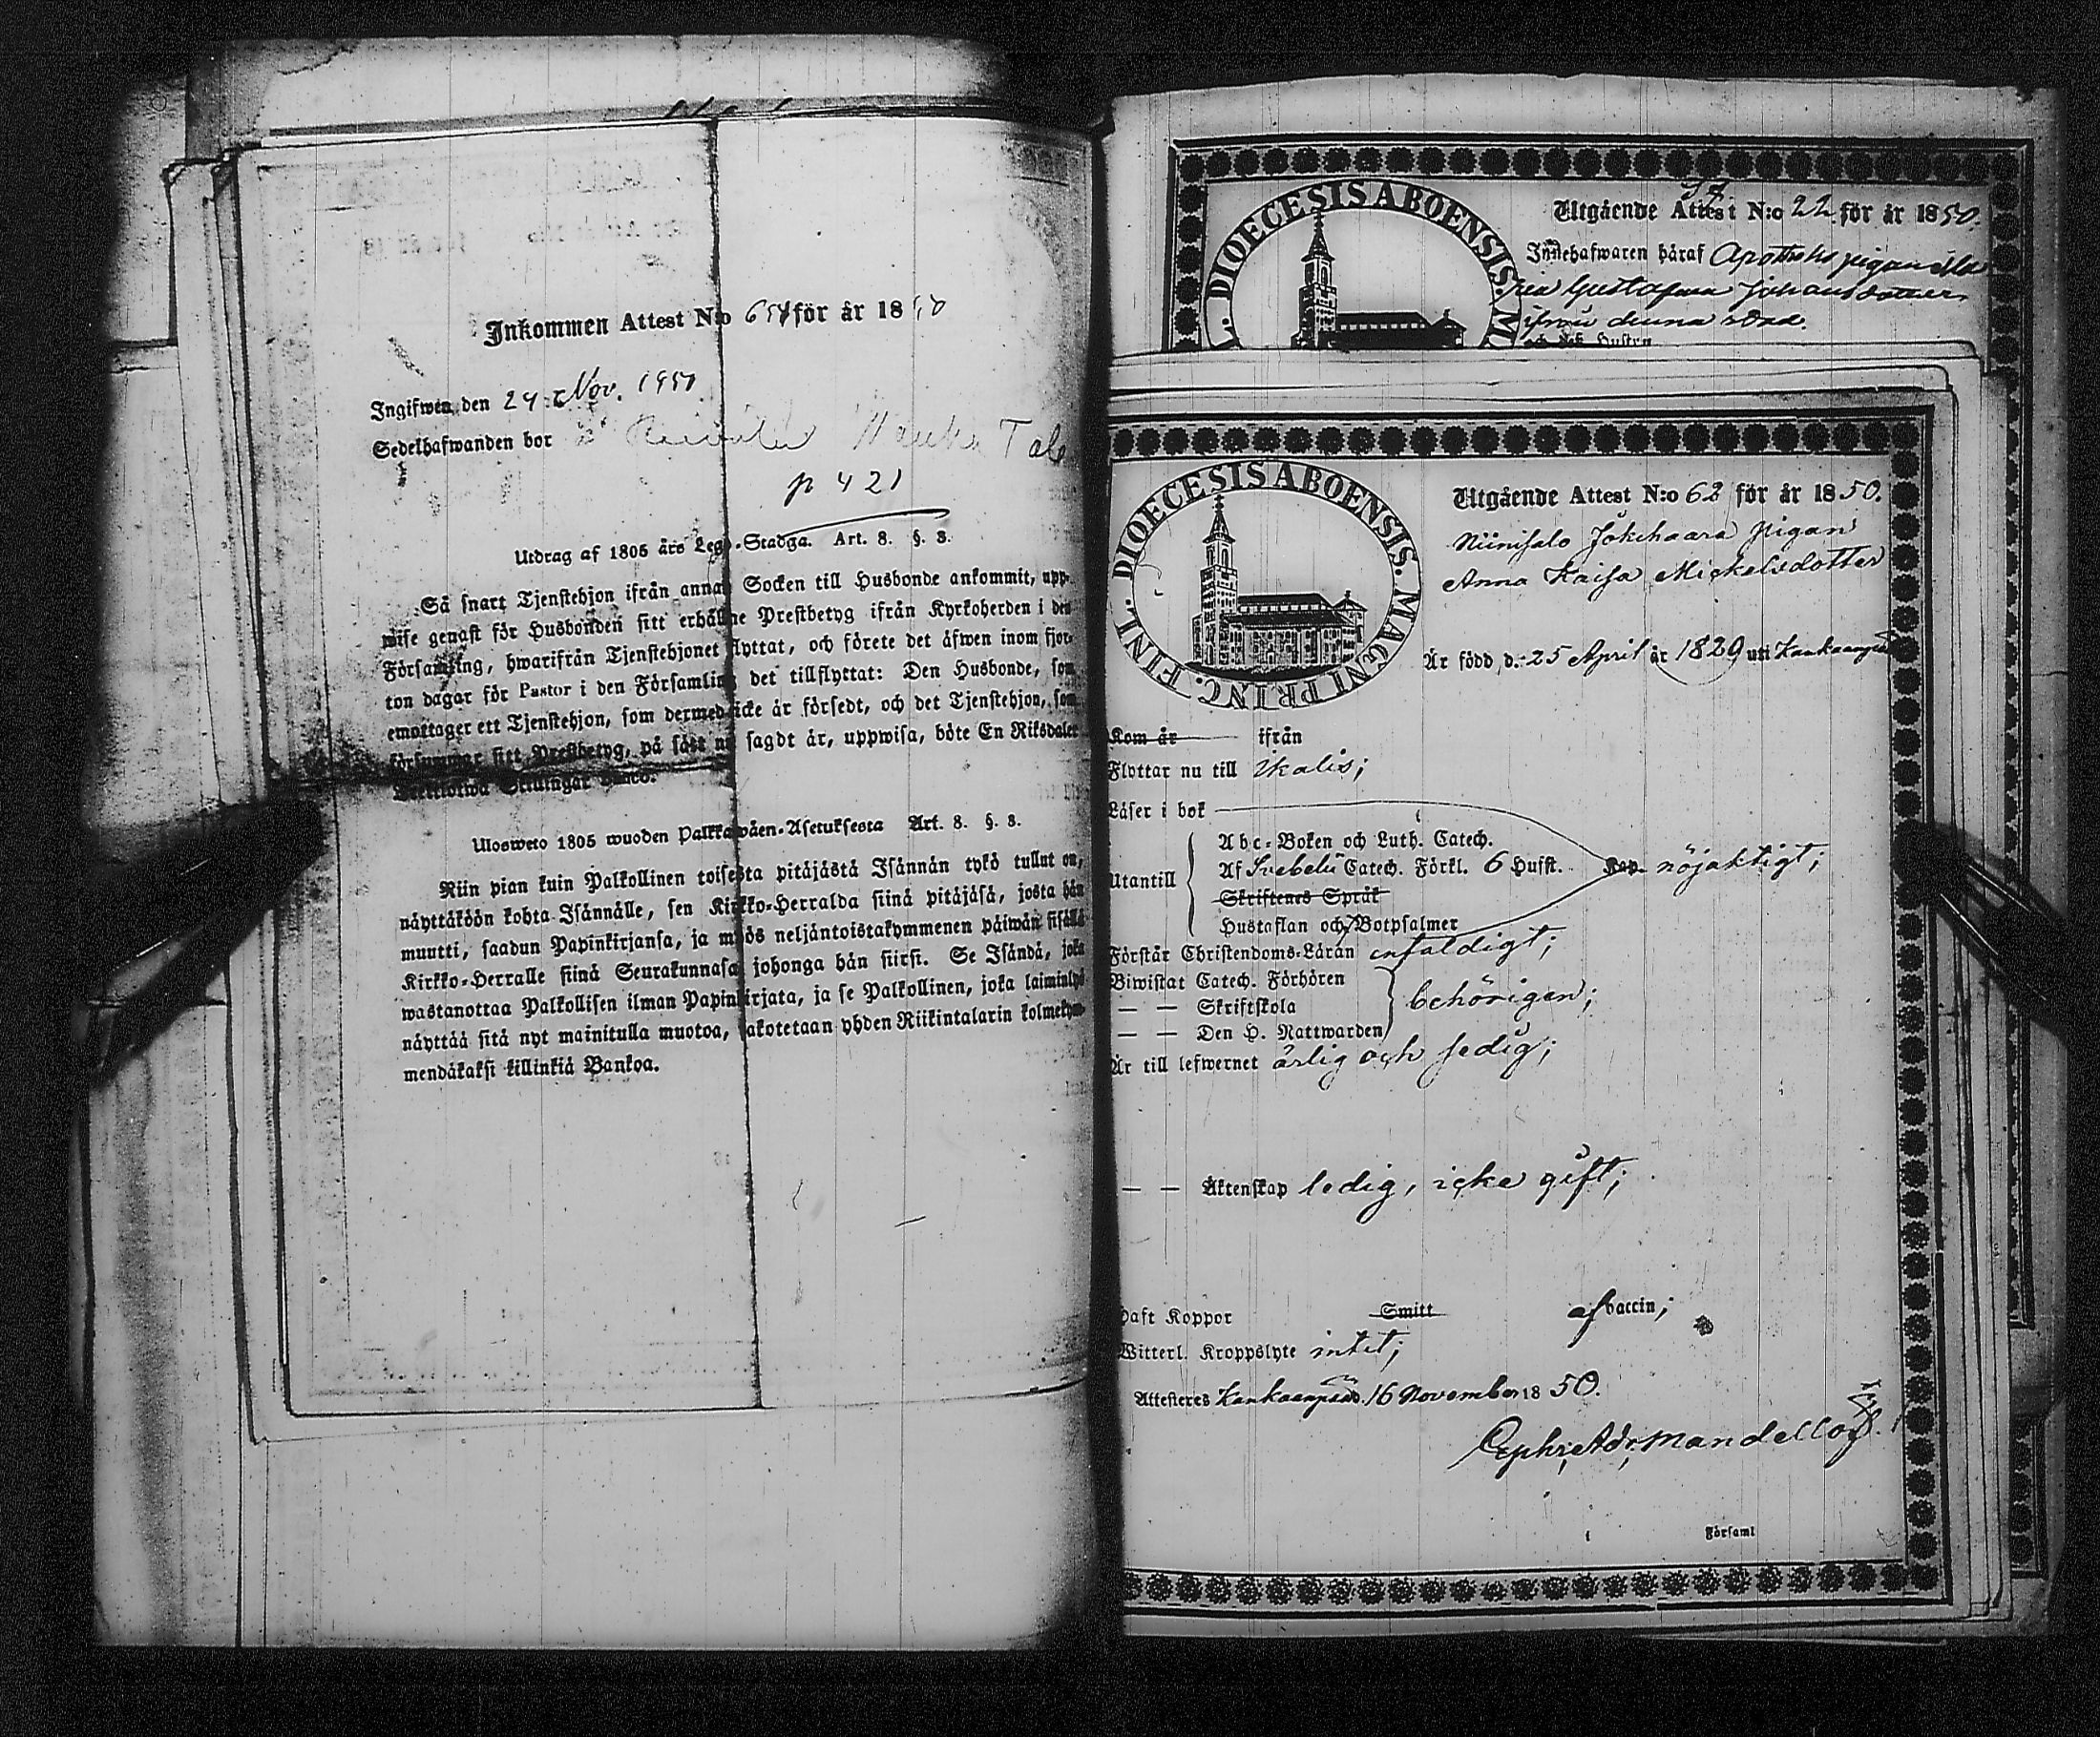 Inkommen Attest N:o för år 1850
Ingifwen den 24 Nov. 1850
Sedelhafwanden bor
p 421
Utdrag af 1805 års Lego-Stadga. Art. 8. §. 3.
Så snart Tjenstehjon ifrån annan Socken till Husbonde ankommit, upp-
wise genast för Husbonden sitt erhållne Prestbetyg ifrån Kyrkoherden i den
Församling, hwarifrån Tjenstehjonet flyttat, och förete det äfwen inom fjor-
ton dagar för Pastor i den Församling det tillflyttat: Den Husbonde, som
emottager ett Tjenstehjon, som dermed icke är försedt, och det Tjenstehjon, som
försummar sitt Prestbetyg, på sätt nu sagdt är, uppwisa, böte En Riksdaler
Ulosweto 1805 wuoden Palkkawäen-Asetuksesta Art. 8. §. 3.
Niin pian kuin Palkollinen toisesta pitäjästä Isännän tykö tullut on,
näyttäköön kohta Isännälle, sen Kirkko-Herralda siinä pitäjäsä, josta hän
muutti, saadun Papinkirjansa, ja myös neljäntoistakymmenen päiwän sisällä
Kirkko-Herralle siinä Seurakunnasa johonga hän siirsi. Se Isändä, joka
wastanottaa Palkollisen ilman Papinkirjata, ja se Palkollinen, joka laiminlyö
näyttää sitä nyt mainitulla muotoa, sakotetaan yhden Riikintalarin kolmekym-
mendäkaksi killinkiä Bankoa.
DIOECESIS ABOENSIS. M
Utgående Attest N:o 22 för år 1850.
Innehafwaren häraf Apotheks pigan
Gustafwa Johansdotter
ifrån denna stad.
och dess Hustru
DIOECESIS ABOENSIS. MAGNI PRINC. FINL.
Utgående Attest N:o 62 för år 1850.
Niinisalo Jokihaara pigan
Anna Kaisa Mickelsdotter
Är född d. 25 April år 1829 uti Kankaanpää
Kom år ifrån
Flyttar nu till Ikalis;
Läser i bok
Utantill
Abc-Boken och Luth. Catech.
Af Svebelii Catech. Förkl. 6 Hufst. Kap. nöjaktigt;
Skriftenes Språk
Hustaflan och 7 Botpsalmer
Förstår Christendoms-Läran enfaldigt;
Biwistat Catech. Förhören
— — Skriftskola behörigen;
— — Den H. Nattwarden
Är till lefwernet ärlig och sedig;
— — Äktenskap ledig, icke gift;
Haft Koppor Smitt af vaccin;
Witterl. Kroppslyte intet;
Attesteras Kankaanpää d. 16 November 1850.
Ephr. Adr. Mandellöf
Församl